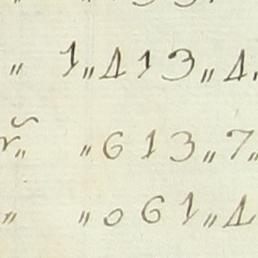 „ 1„413„4.
r̃„ „613„7„
„ „061„4